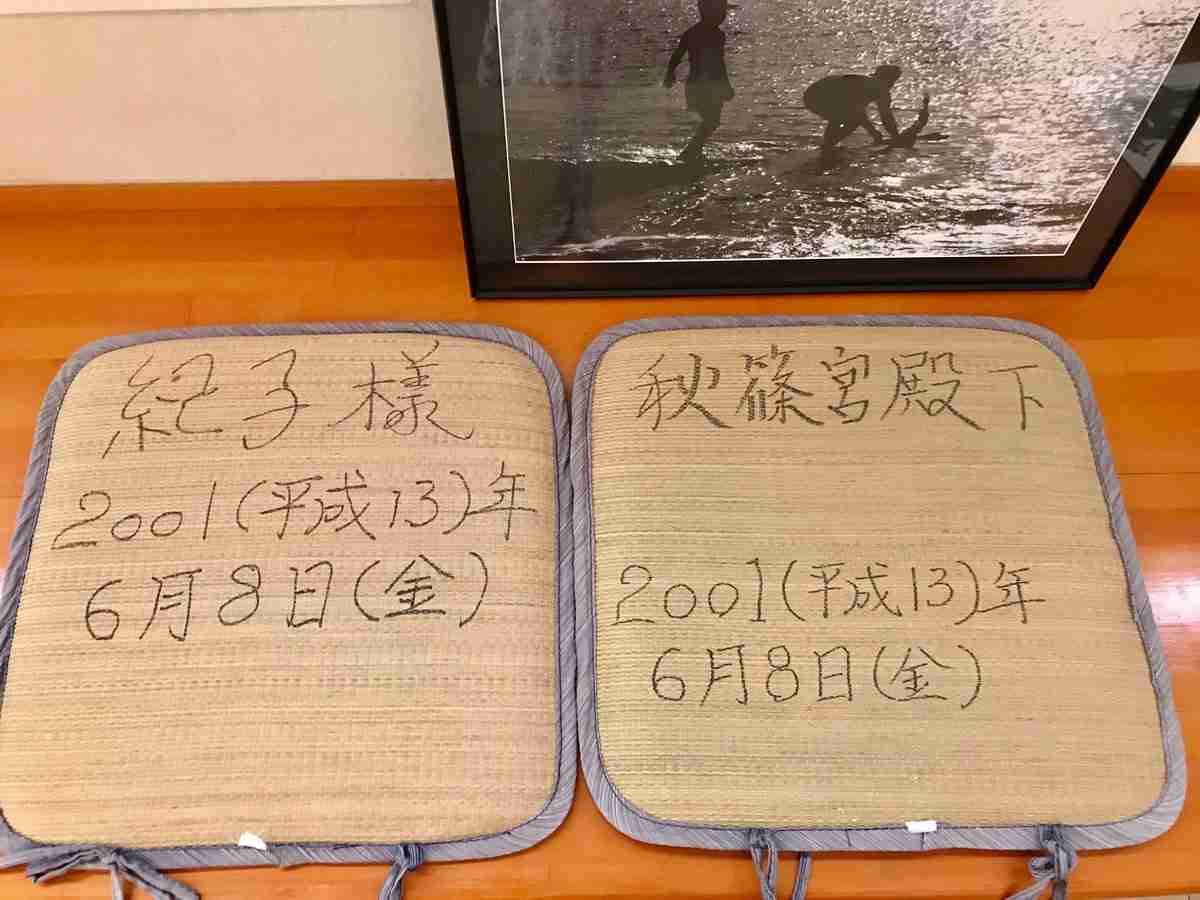 紀子様
2001(平成13)年
6月8日(金)
秋篠宮殿下
2001(平成13)年
6月8日(金)